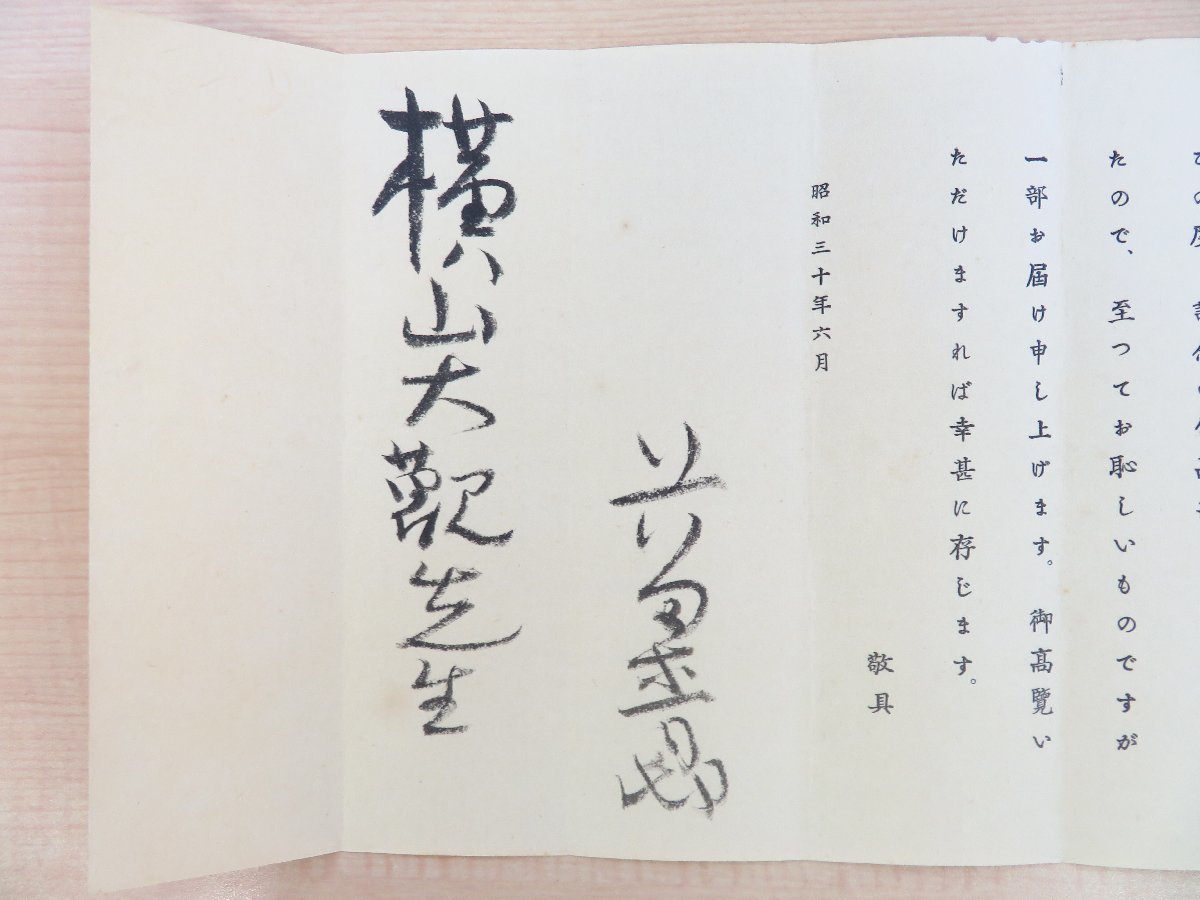 たので、至つてお恥しいものですが
一部お届け申し上げます。御高覽い
ただけますれば幸甚に存じます。
敬具
昭和三十年六月
横山大觀先生